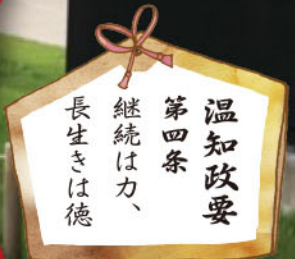 温知政要
第四条
継続は力、
長生きは徳